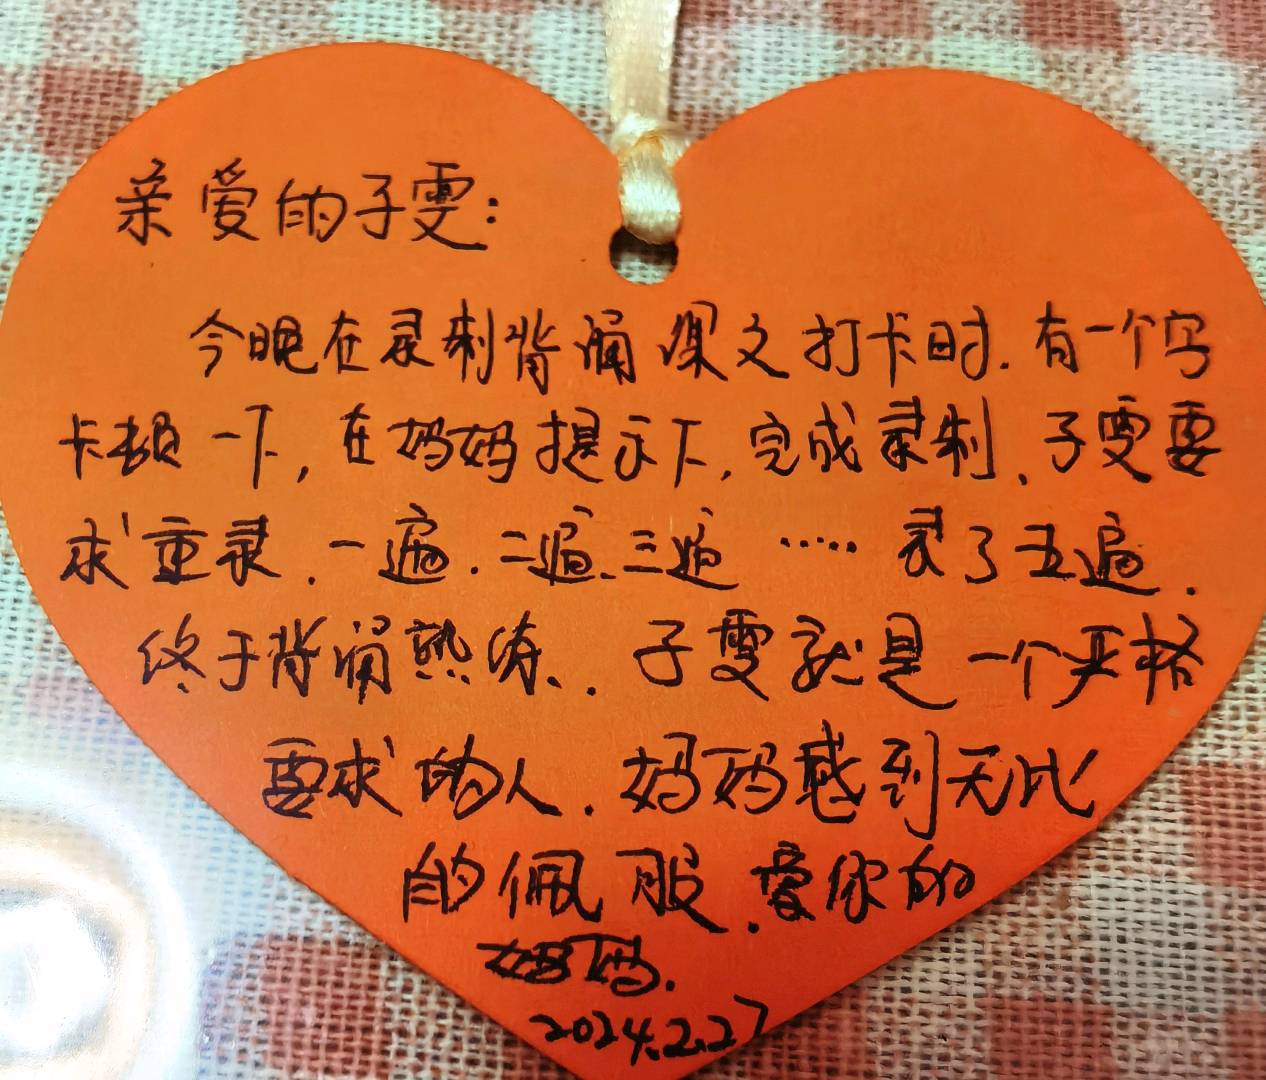 亲爱的子雯:
今晚在录制背诵课文打卡时.有一个字
卡顿一下,在妈妈提示下,完成录制、子雯要
求重录.一遍.二遍.三遍……录了五遍.
终于背诵熟练..子雯就是一个严格
要求的人.妈妈感到无比
的佩服.爱你的
妈妈.
2024.2.27